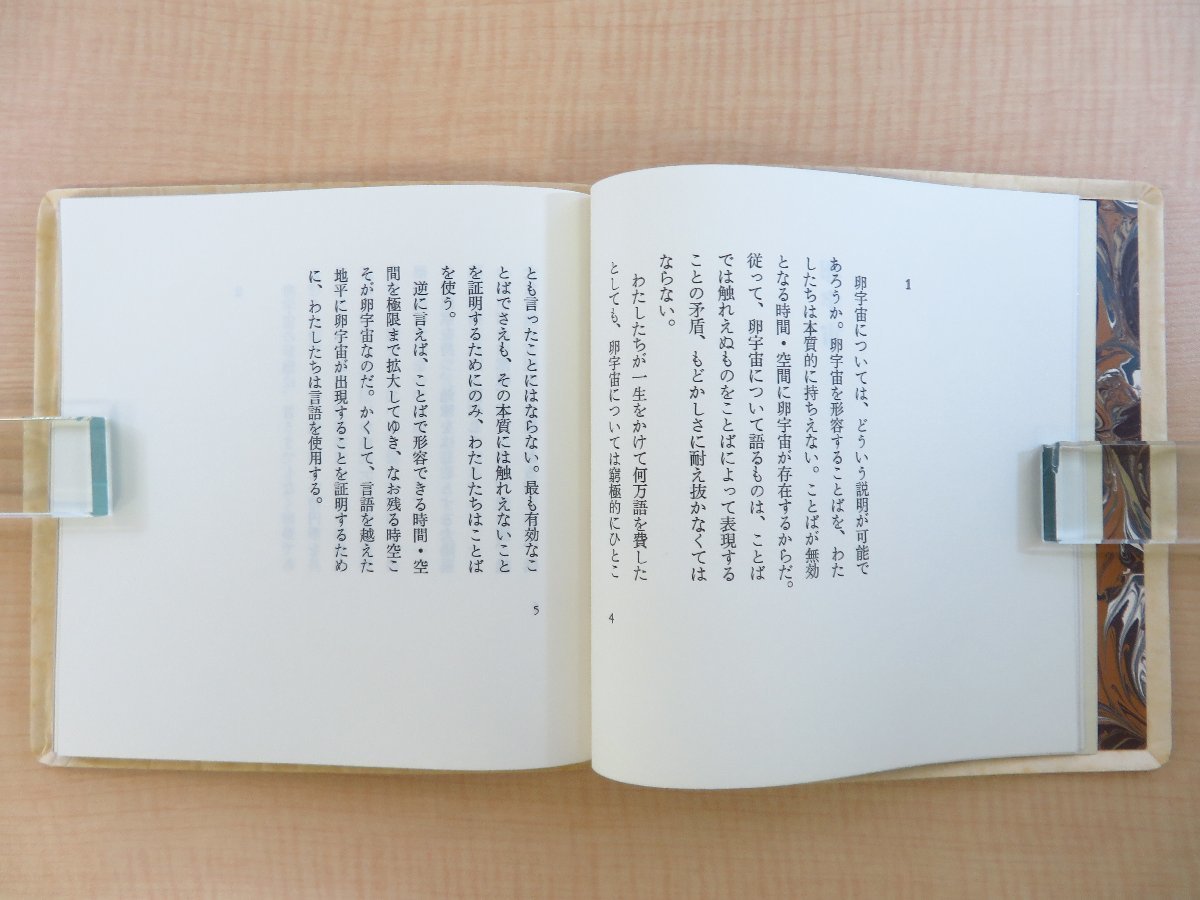 1
卵宇宙については、どういう説明が可能で
あろうか。卵宇宙を形容することばを、わた
したちは本質的に持ちえない。ことばが無効
となる時間・空間に卵宇宙が存在するからだ。
従って、卵宇宙について語るものは、ことば
では触れえぬものをことばによって表現する
ことの矛盾、もどかしさに耐え抜かなくては
ならない。
わたしたちが一生をかけて何万語を費した
としても、卵宇宙については窮極的にひとこ
4
とも言ったことにはならない。最も有効なこ
とばでさえも、その本質には触れえないこと
を証明するためにのみ、わたしたちはことば
を使う。
逆に言えば、ことばで形容できる時間・空
間を極限まで拡大してゆき、なお残る時空こ
そが卵宇宙なのだ。かくして、言語を越えた
地平に卵宇宙が出現することを証明するため
に、わたしたちは言語を使用する。
5